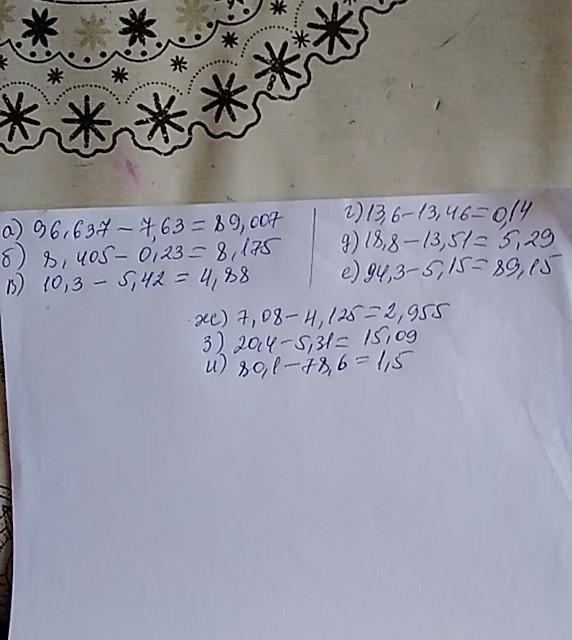 а) 96,637 - 7,63 = 89,007
б) 8,405 - 0,23 = 8,175
в) 10,3 - 5,42 = 4,88
г) 13,6 - 13,46 = 0,14
д) 18,8 - 13,51 = 5,29
е) 94,3 - 5,15 = 89,15
ж) 7,08 - 4,125 = 2,955
з) 20,4 - 5,31 = 15,09
и) 80,1 - 78,6 = 1,5